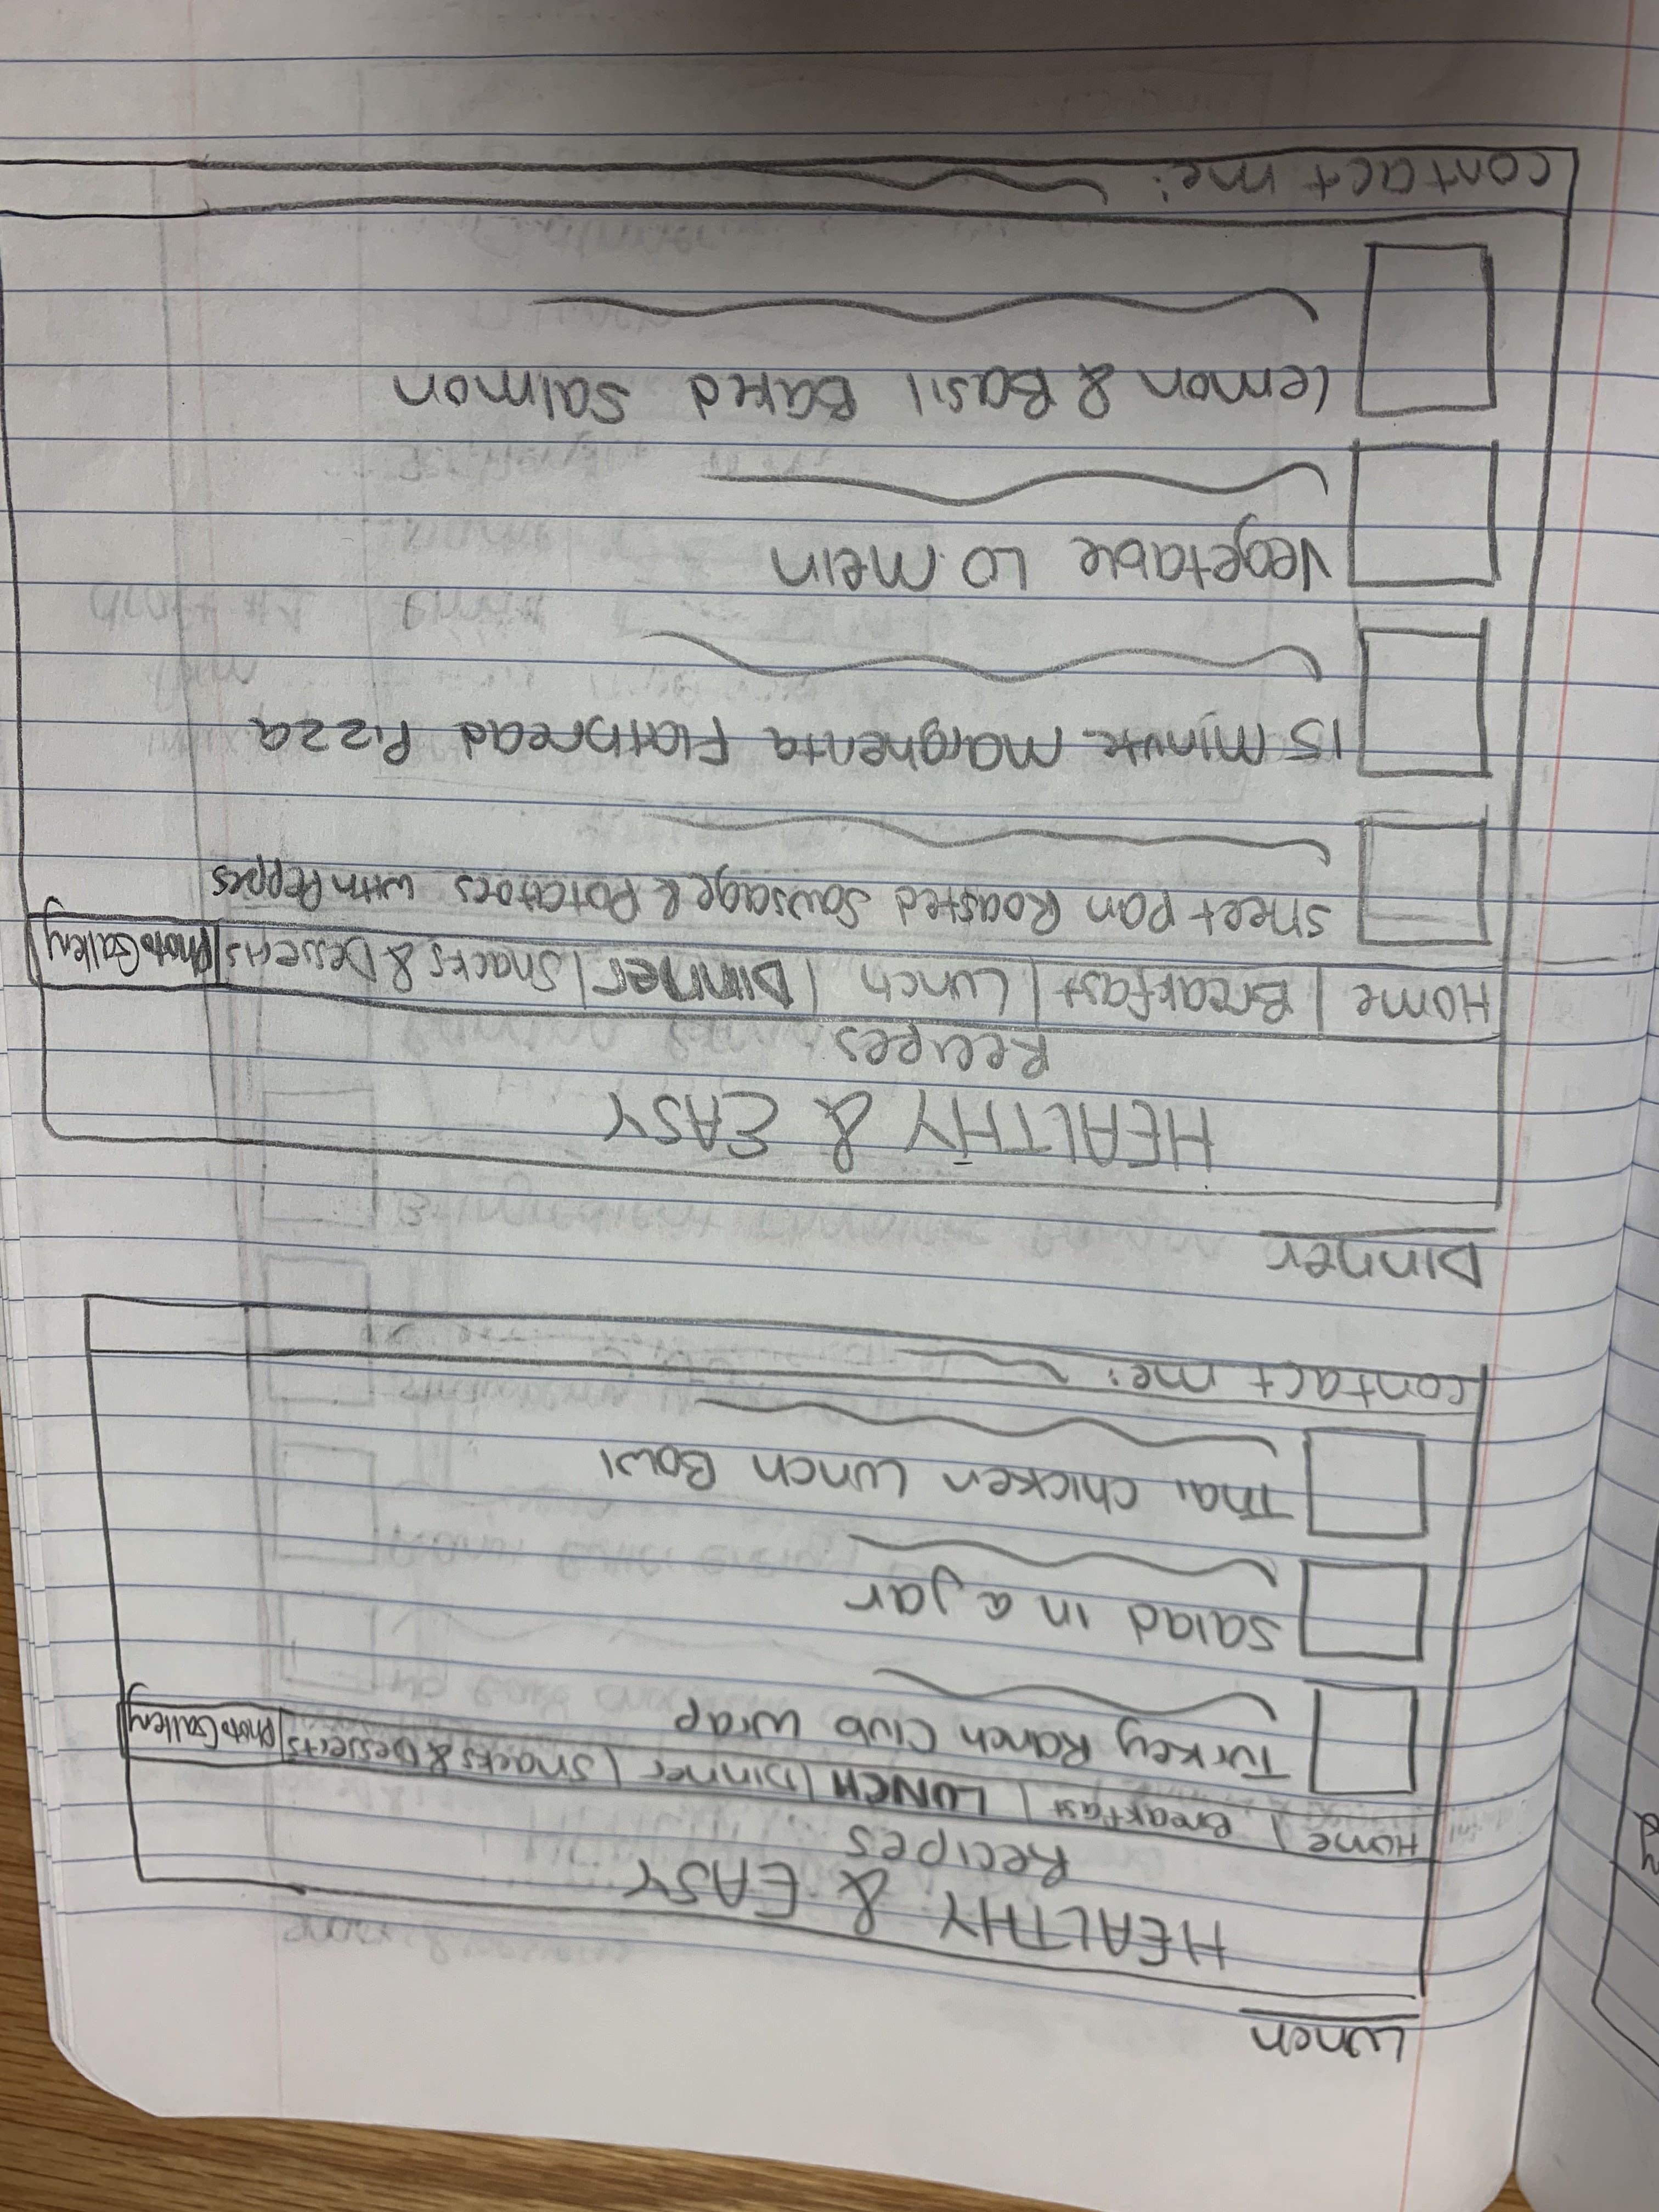 Lunch
HEALTHY & EASY
Recipes
Home | Breakfast | LUNCH | Dinner | Snacks & Desserts | Photo Gallery
Turkey Ranch Club Wrap
Salad in a Jar
Thai Chicken Lunch Bowl
Contact me:
Dinner
HEALTHY & EASY
Recipes
Home | Breakfast | Lunch | Dinner | Snacks & Desserts | Photo Gallery
Sheet Pan Roasted Sausage & Potatoes with Peppers
15 Minute Margherita Flatbread Pizza
Vegetable Lo Mein
Lemon & Basil Baked Salmon
Contact me: